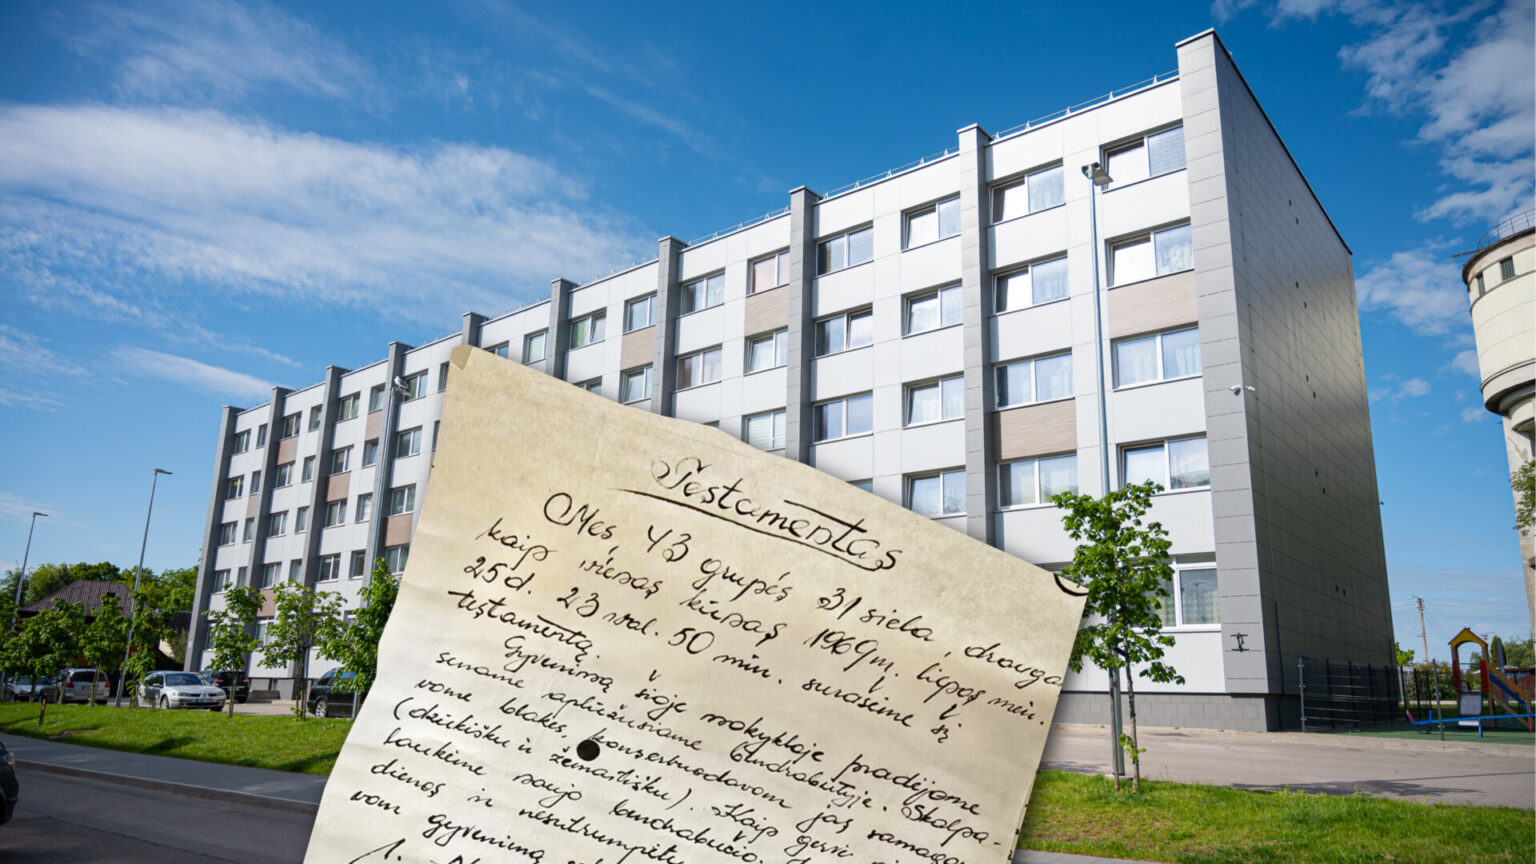 Testamentas
Mes, 43 grupės 31 siela, drauga
kaip vienas kūnas 1969 m. liepos mėn.
25 d. 23 val. 50 min. surašėme šį
testamentą.
Gyvenimą šioje mokykloje pradėjome
sename aplūžusiame bendrabutyje. Skalpa-
vome blakes, konservuodavom jas
(dzūkišku ir žemaitišku). Kaip
laukėme naujo bendrabučio.
dienos ir
vom gyvenimą
1.